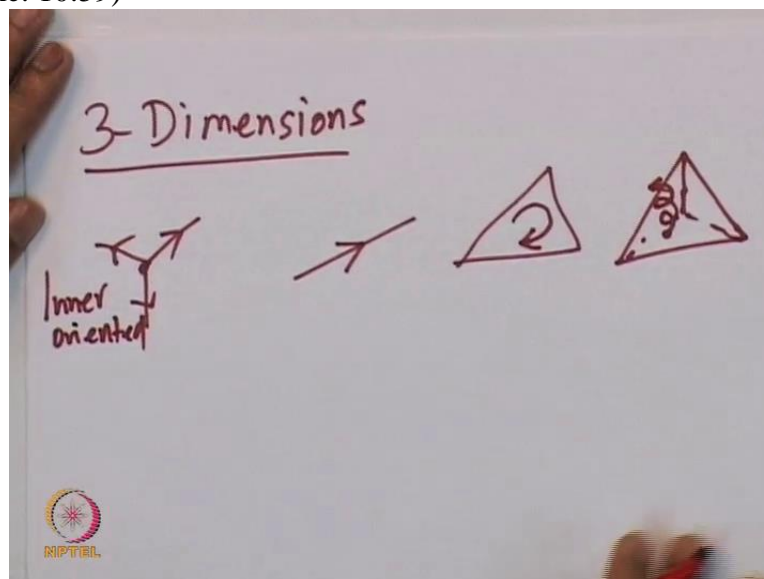 3-Dimensions
Inner
oriented
NPTEL